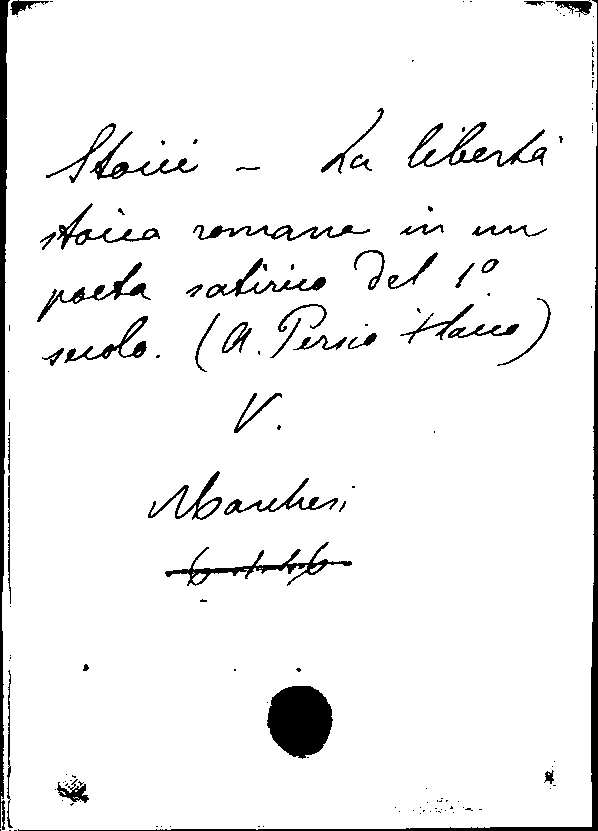 Stoici - La libertà
stoica romana in un
poeta satirico del 1º
secolo. (A. Persio Flacco)
V.
Marchesi